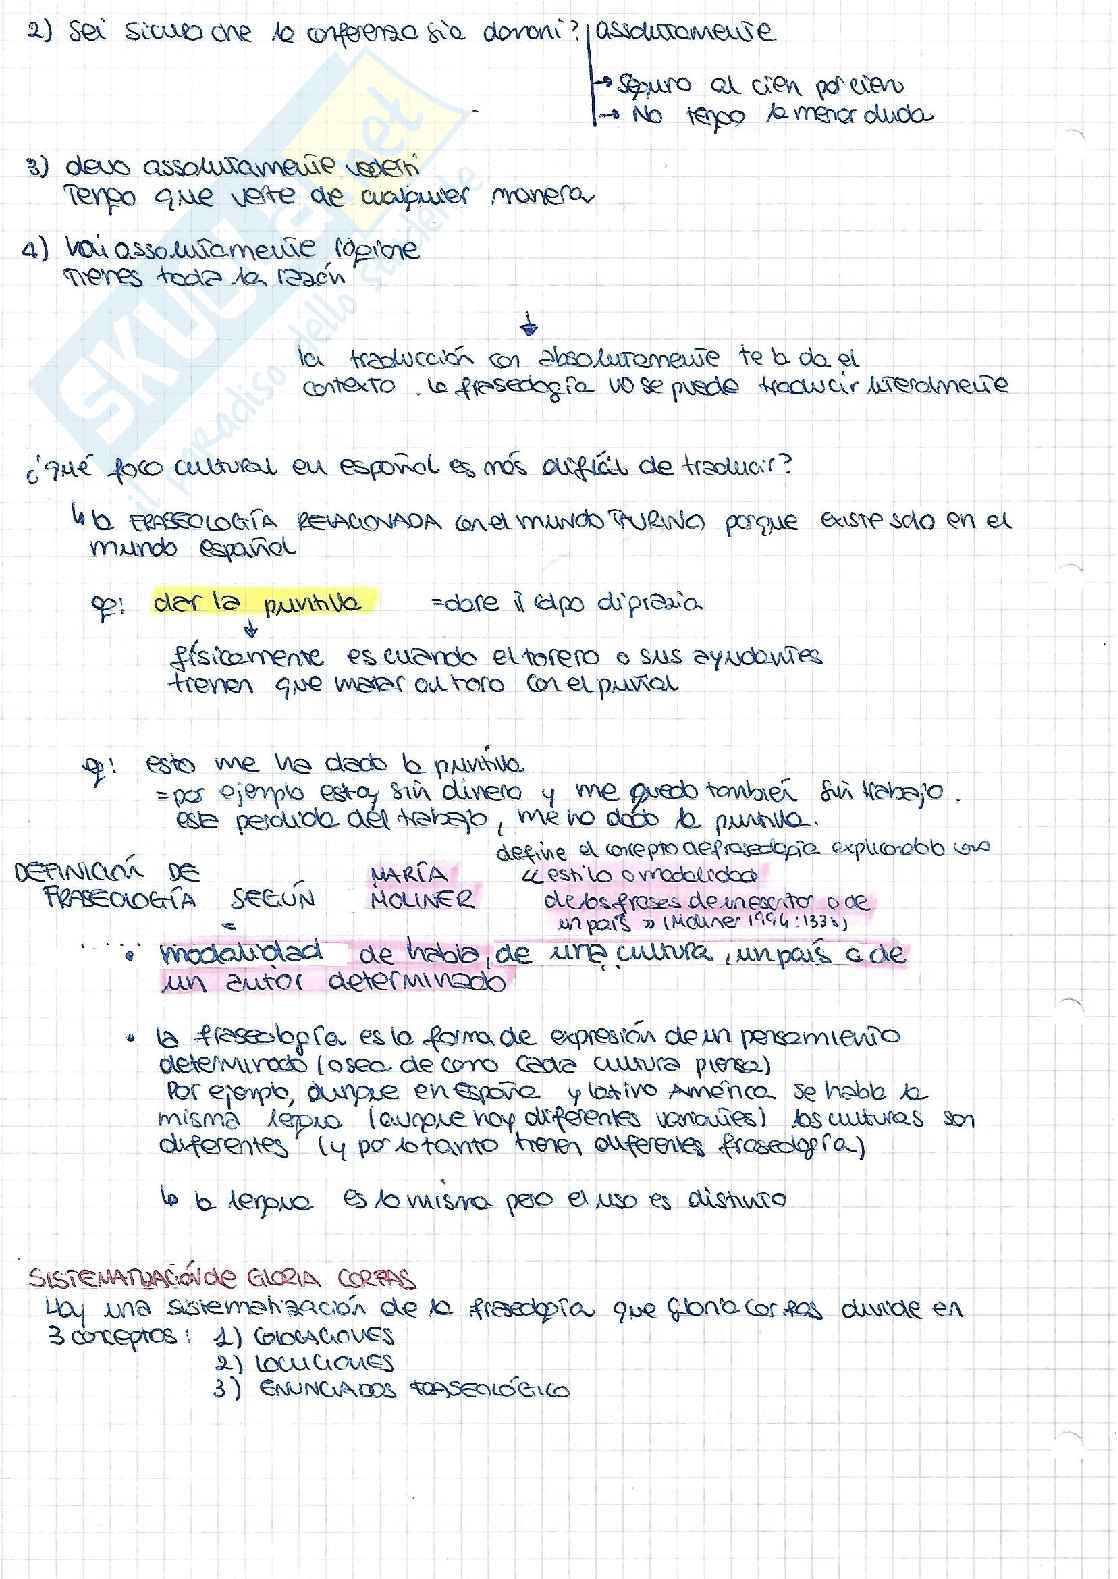 2) Sei sicuro che la conferenza sia domani? assolutamente
→ Seguro al cien por cien
→ No tengo la menor duda
3) devo assolutamente vederti
Tengo que verte de cualquier manera
4) hai assolutamente ragione
Tienes toda la razón
la traducción con absolutamente te la da el
contexto. la fraseología no se puede traducir literalmente
¿qué foco cultural en español es más difícil de traducir?
↳ la FRASEOLOGÍA RELACIONADA con el mundo TAURINO porque existe solo en el
mundo español
ej: dar la puntilla =dare il colpo di grazia
físicamente es cuando el torero o sus ayudantes
tienen que matar al toro con el puñal
ej: esto me ha dado la puntilla
=por ejemplo estoy sin dinero y me quedo también sin trabajo.
esta perdida del trabajo, me ha dado la puntilla.
define el concepto de fraseología explicandolo como
DEFINICIÓN DE MARÍA « estilo o modalidad
FRASEOLOGÍA SEGÚN MOLINER de las frases de un escritor o de
un país » (Moliner 1994:1338)
• modalidad de habla, de una cultura, un país o de
un autor determinado
• la fraseología es la forma de expresión de un pensamiento
determinado (o sea de como cada cultura piensa)
Por ejemplo, aunque en España y latino América se habla la
misma lengua (aunque hay diferentes variantes) las culturas son
diferentes (y por lo tanto tienen diferentes fraseología)
↳ la lengua es la misma pero el uso es distinto
SISTEMATIZACIÓN de GLORIA CORPAS
Hay una sistematización de la fraseología que Gloria Corpas divide en
3 conceptos: 1) COLOCACIONES
2) LOCUCIONES
3) ENUNCIADOS FRASEOLÓGICO
SKUOLA.net
il paradiso dello studente